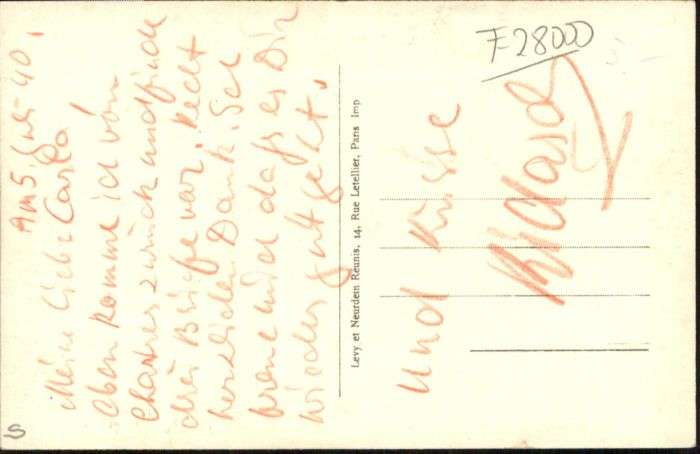 Am 5. Juli 40.
Meine liebe Carla,
Eben komme ich von
Chartres zurück und finde
drei Briefe vor. Recht
herzlichen Dank. Ich
freue mich daß es Dir
wieder gut geht.
Levy et Neurdein Réunis, 14, Rue Letellier, Paris Imp
und Küsse
F 28000